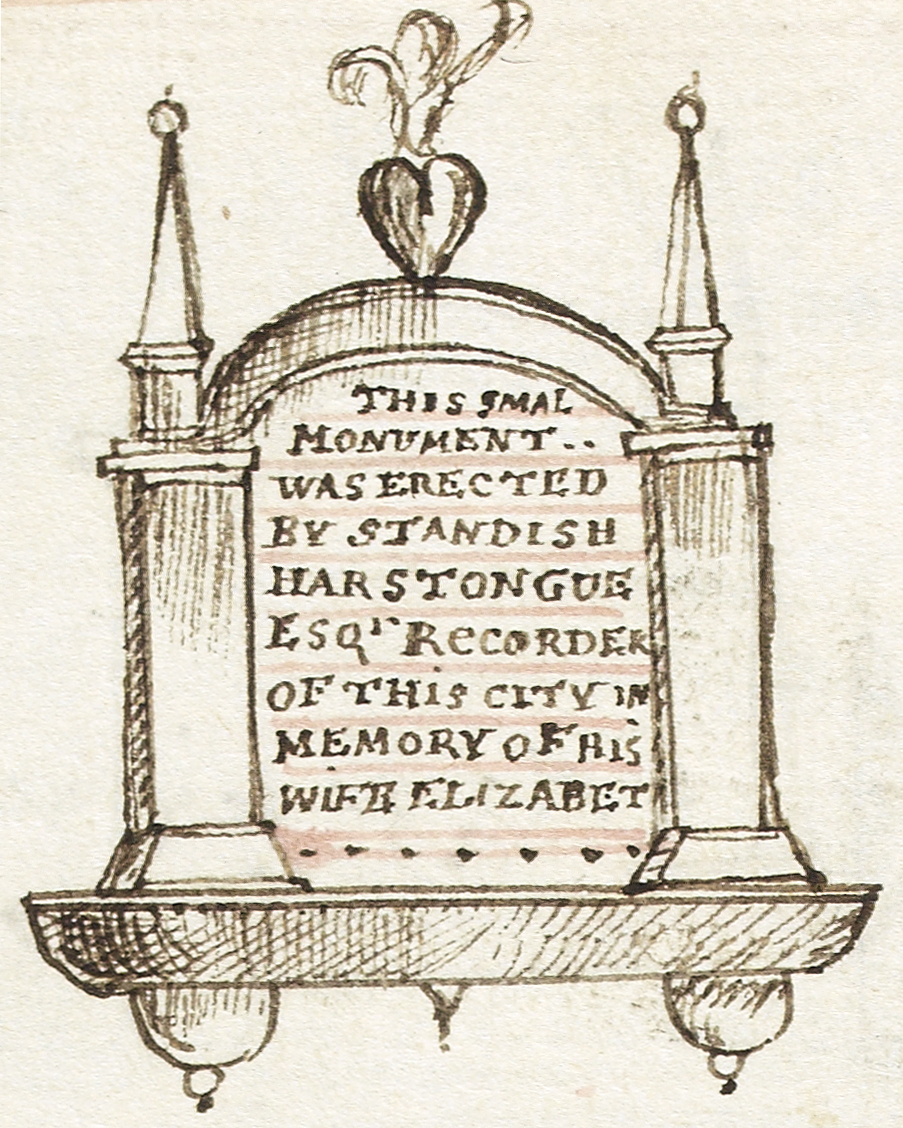 THIS SMAL
MONUMENT..
WAS ERECTED
BY STANDISH
HARSTONGUE
ESQr RECORDER
OF THIS CITY IN
MEMORY OF HIS
WIFE ELIZABET